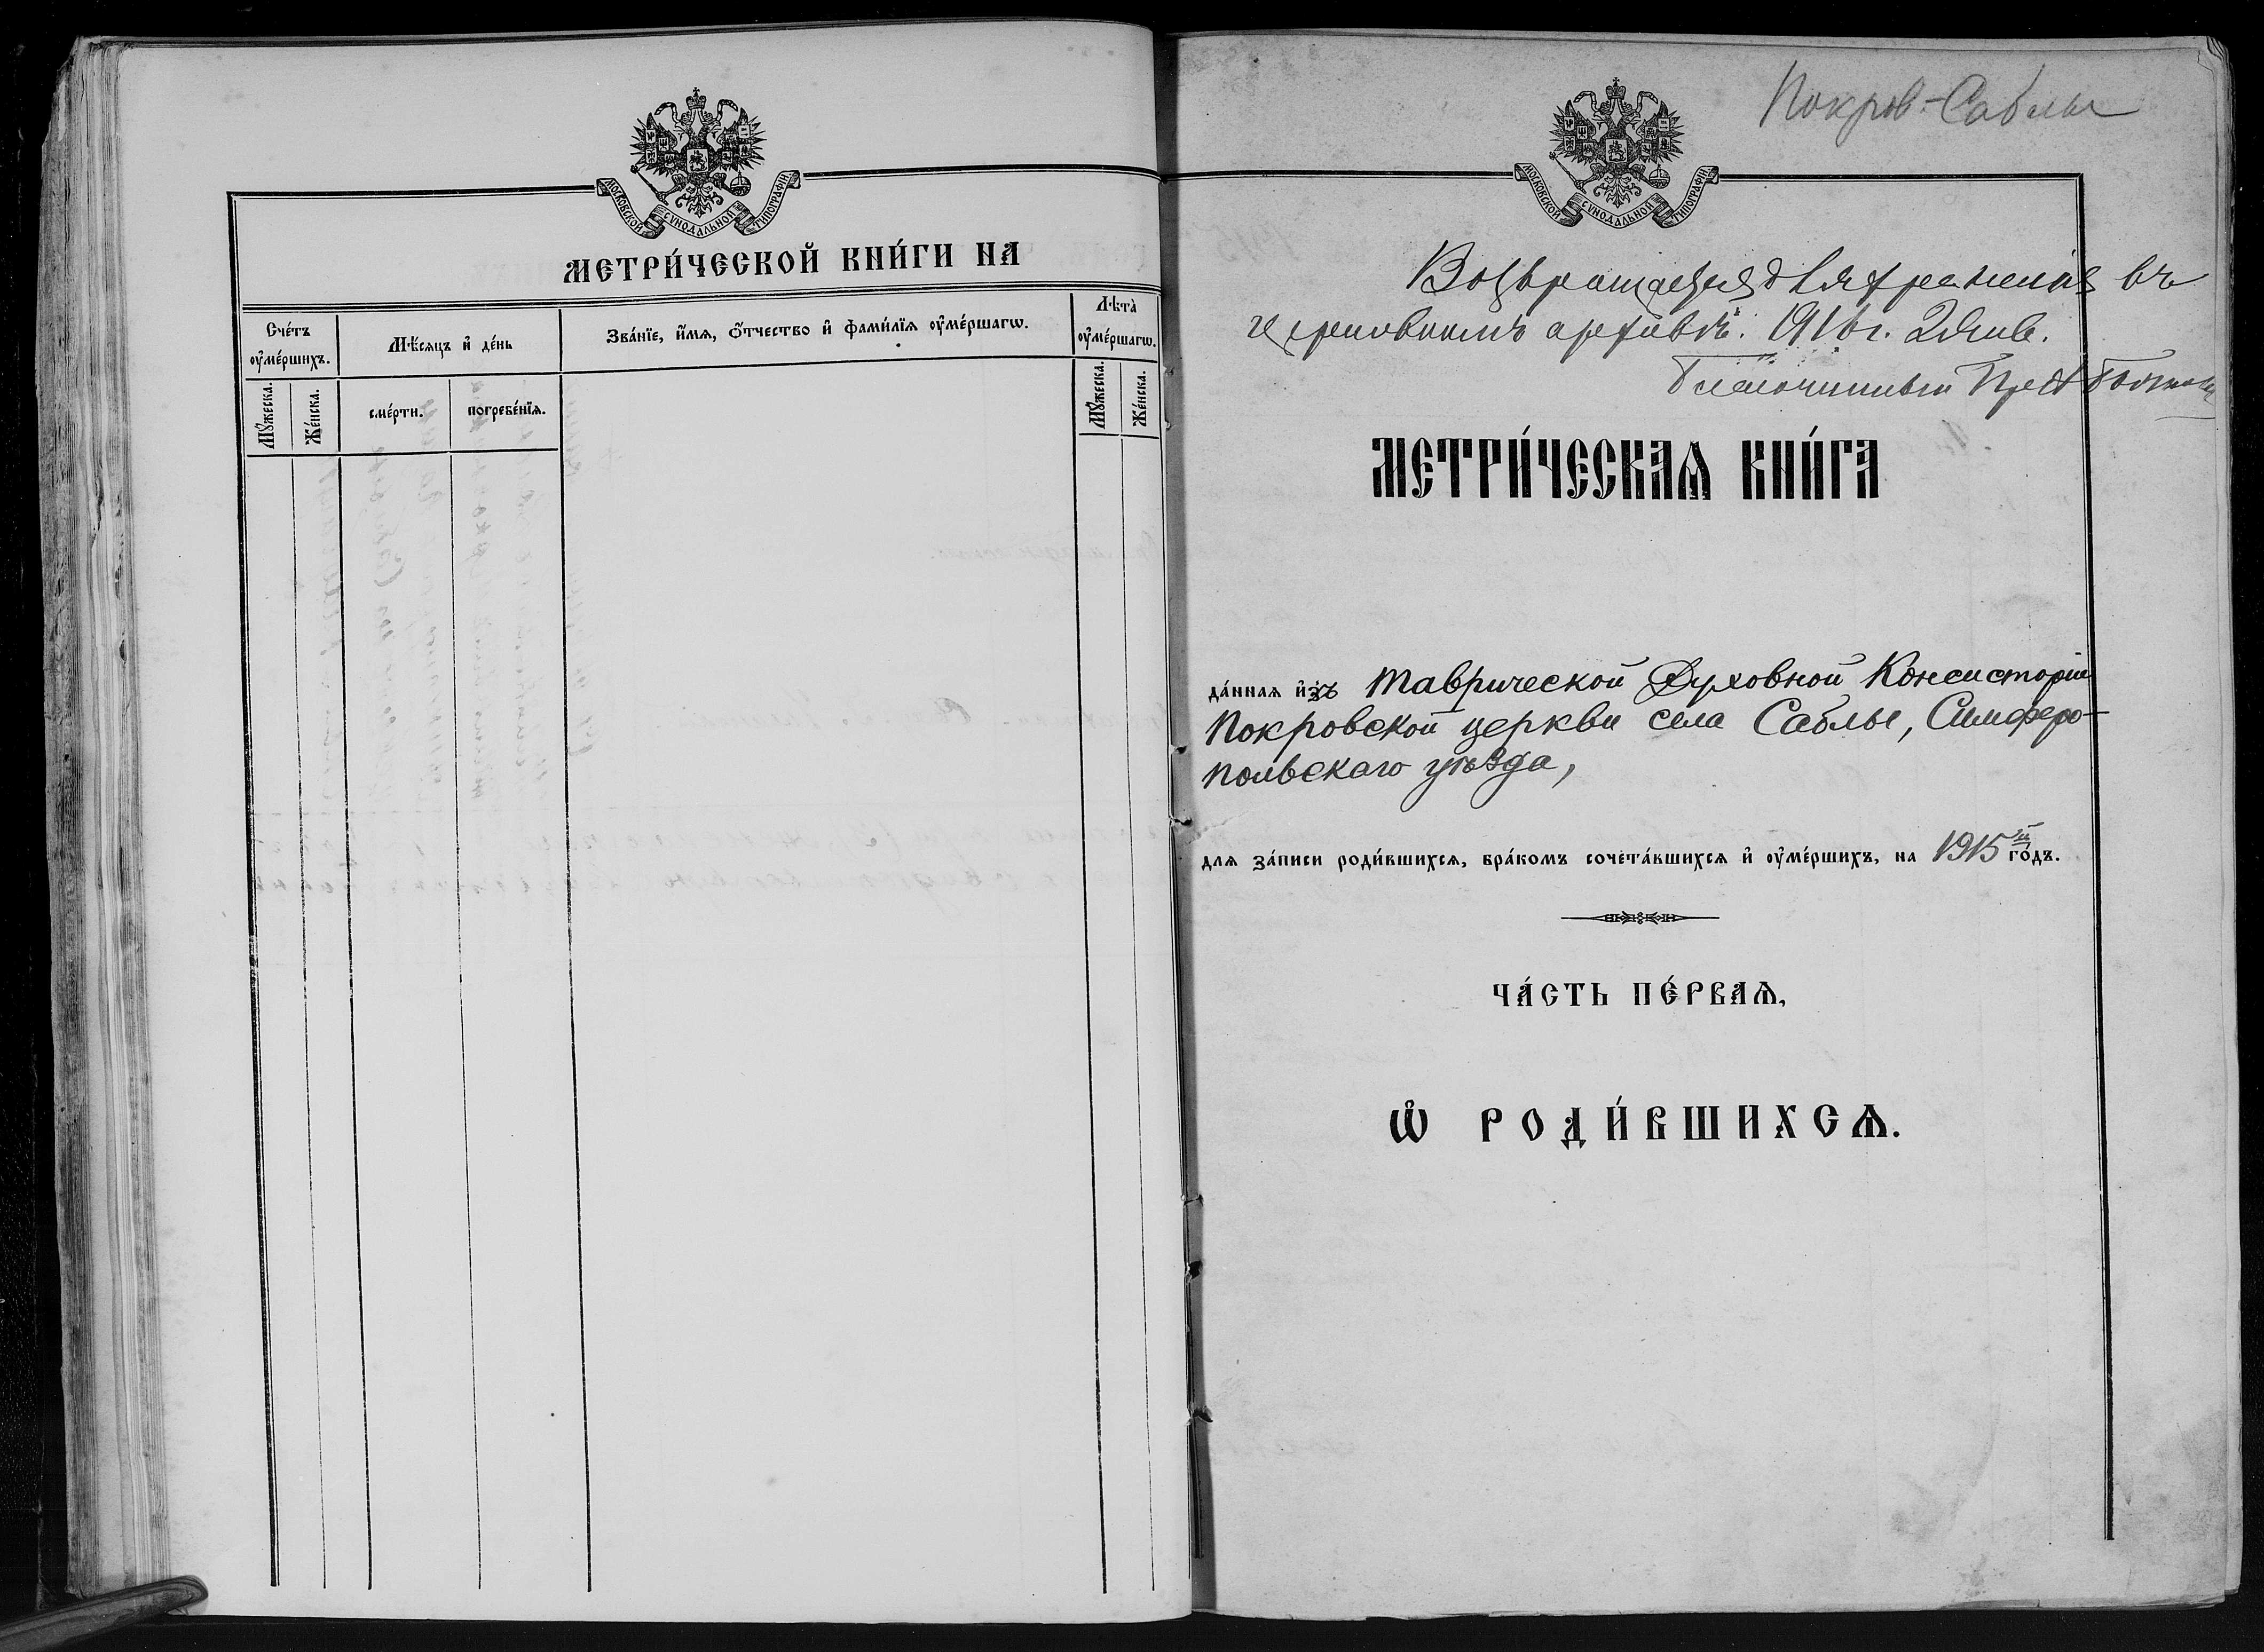 МОСКОВСКОЙ СѴНОДАЛЬНОЙ ТИПОГРАФІИ
МЕТРИ́ЧЕСКОЙ КНИ́ГИ НА
Сче́тъ ᲂу҆ме́ршихъ.
Мѣ́сяцъ и҆ де́нь
Зва́нїе, и҆́мѧ, ѻ҆́тчество и҆ фами́лїѧ ᲂу҆ме́ршагѡ.
Лѣ̀та̀ ᲂу҆ме́ршагѡ.
Мꙋ́жеска.
Же́нска.
сме́рти.
погребе́нїѧ.
Мꙋ́жеска.
Же́нска.
Покров.-Саблы
МОСКОВСКОЙ СѴНОДАЛЬНОЙ ТИПОГРАФІИ
Возвращается для храненія въ
церковномъ архивѣ. 1916 г. 2 Янв.
Благочинный
МЕТРИ́ЧЕСКАѦ КНИ́ГА
да́ннаѧ и҆зъ Таврической Духовной Консисторіи
Покровской церкви села Саблы, Симферо-
польскаго уѣзда,
длѧ за́писи роди́вшихсѧ, бра́комъ сочета́вшихсѧ и҆ ᲂу҆ме́ршихъ, на 1915 й го́дъ.
ЧА́СТЬ ПЕ́РВАѦ,
Ѡ҆ РОДИ́ВШИХСѦ.